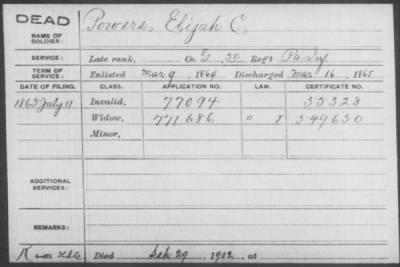 DEAD
NAME OF SOLDIER: Powers, Elijah C.
SERVICE: Late rank, Co. G, 50 Reg't Pa. Inf.
TERM OF SERVICE: Enlisted Mar 9, 1864 Discharged Mar 16, 1865
DATE OF FILING. CLASS. APPLICATION NO. LAW. CERTIFICATE NO.
1865 July 11 Invalid, 77094 55323
Widow, 771686 549650
Minor,
ADDITIONAL SERVICES:
REMARKS:
Died 29, 1902, at